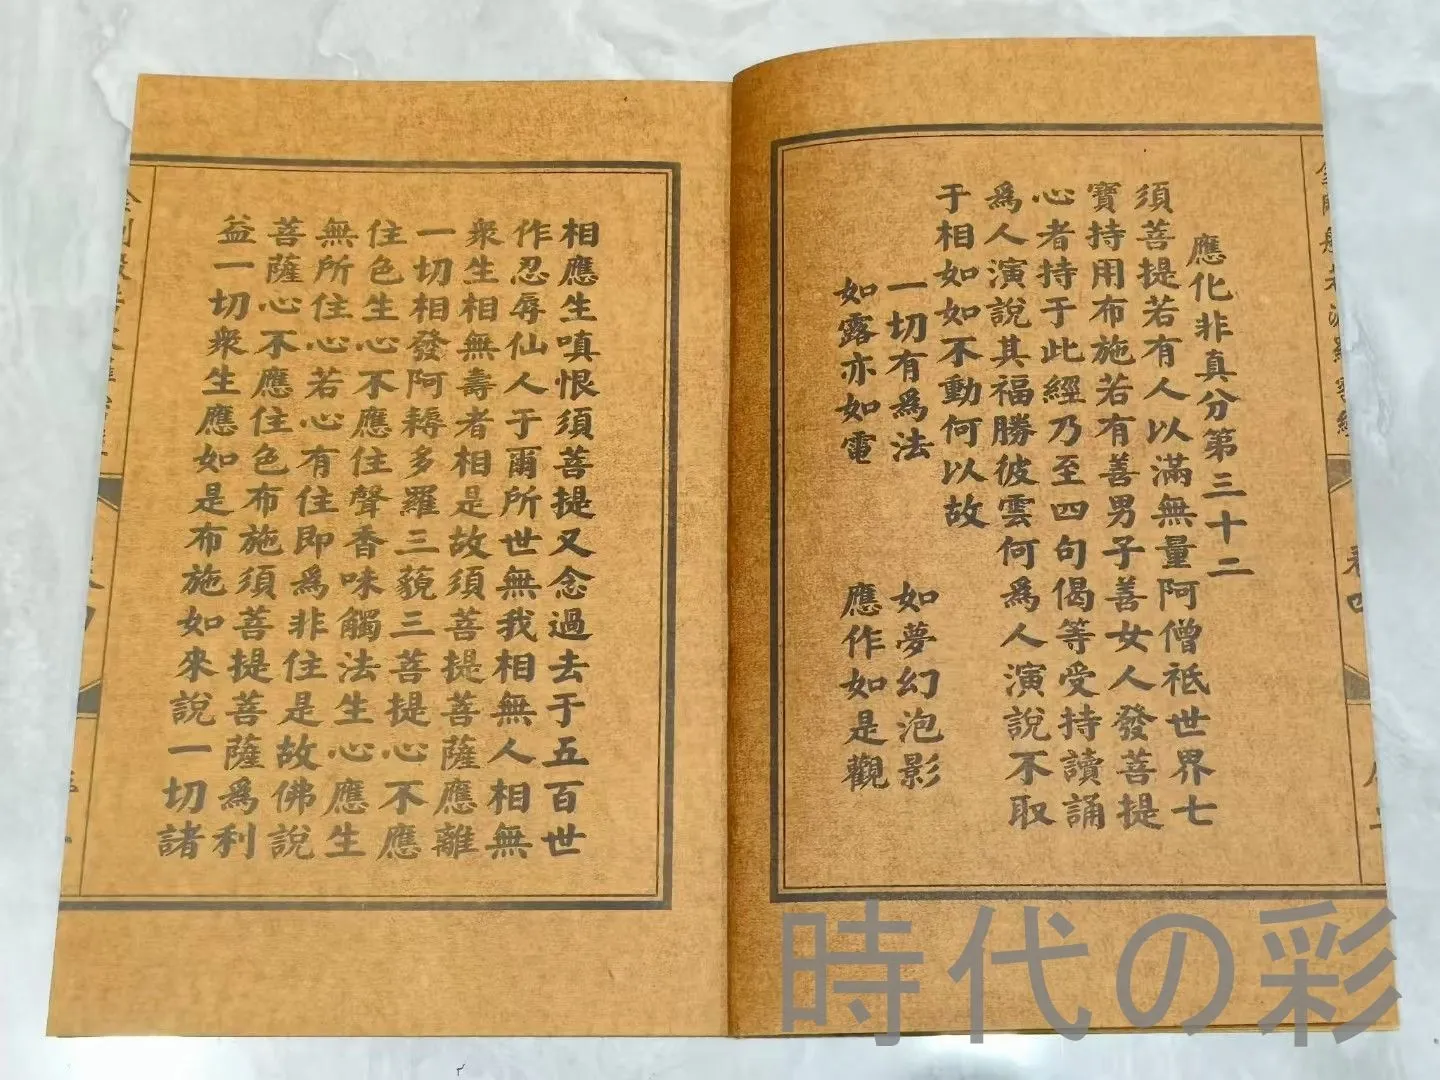 應化非真分第三十二
須菩提若有人以滿無量阿僧祇世界七
寶持用布施若有善男子善女人發菩提
心者持于此經乃至四句偈等受持讀誦
為人演說其福勝彼雲何為人演說不取
于相如如不動何以故
一切有為法 如夢幻泡影
如露亦如電 應作如是觀
相應生嗔恨須菩提又念過去于五百世
作忍辱仙人于爾所世無我相無人相無
衆生相無壽者相是故須菩提菩薩應離
一切相發阿耨多羅三藐三菩提心不應
住色生心不應住聲香味觸法生心應生
無所住心若心有住即為非住是故佛說
菩薩心不應住色布施須菩提菩薩為利
益一切衆生應如是布施如來說一切諸
時代の彩